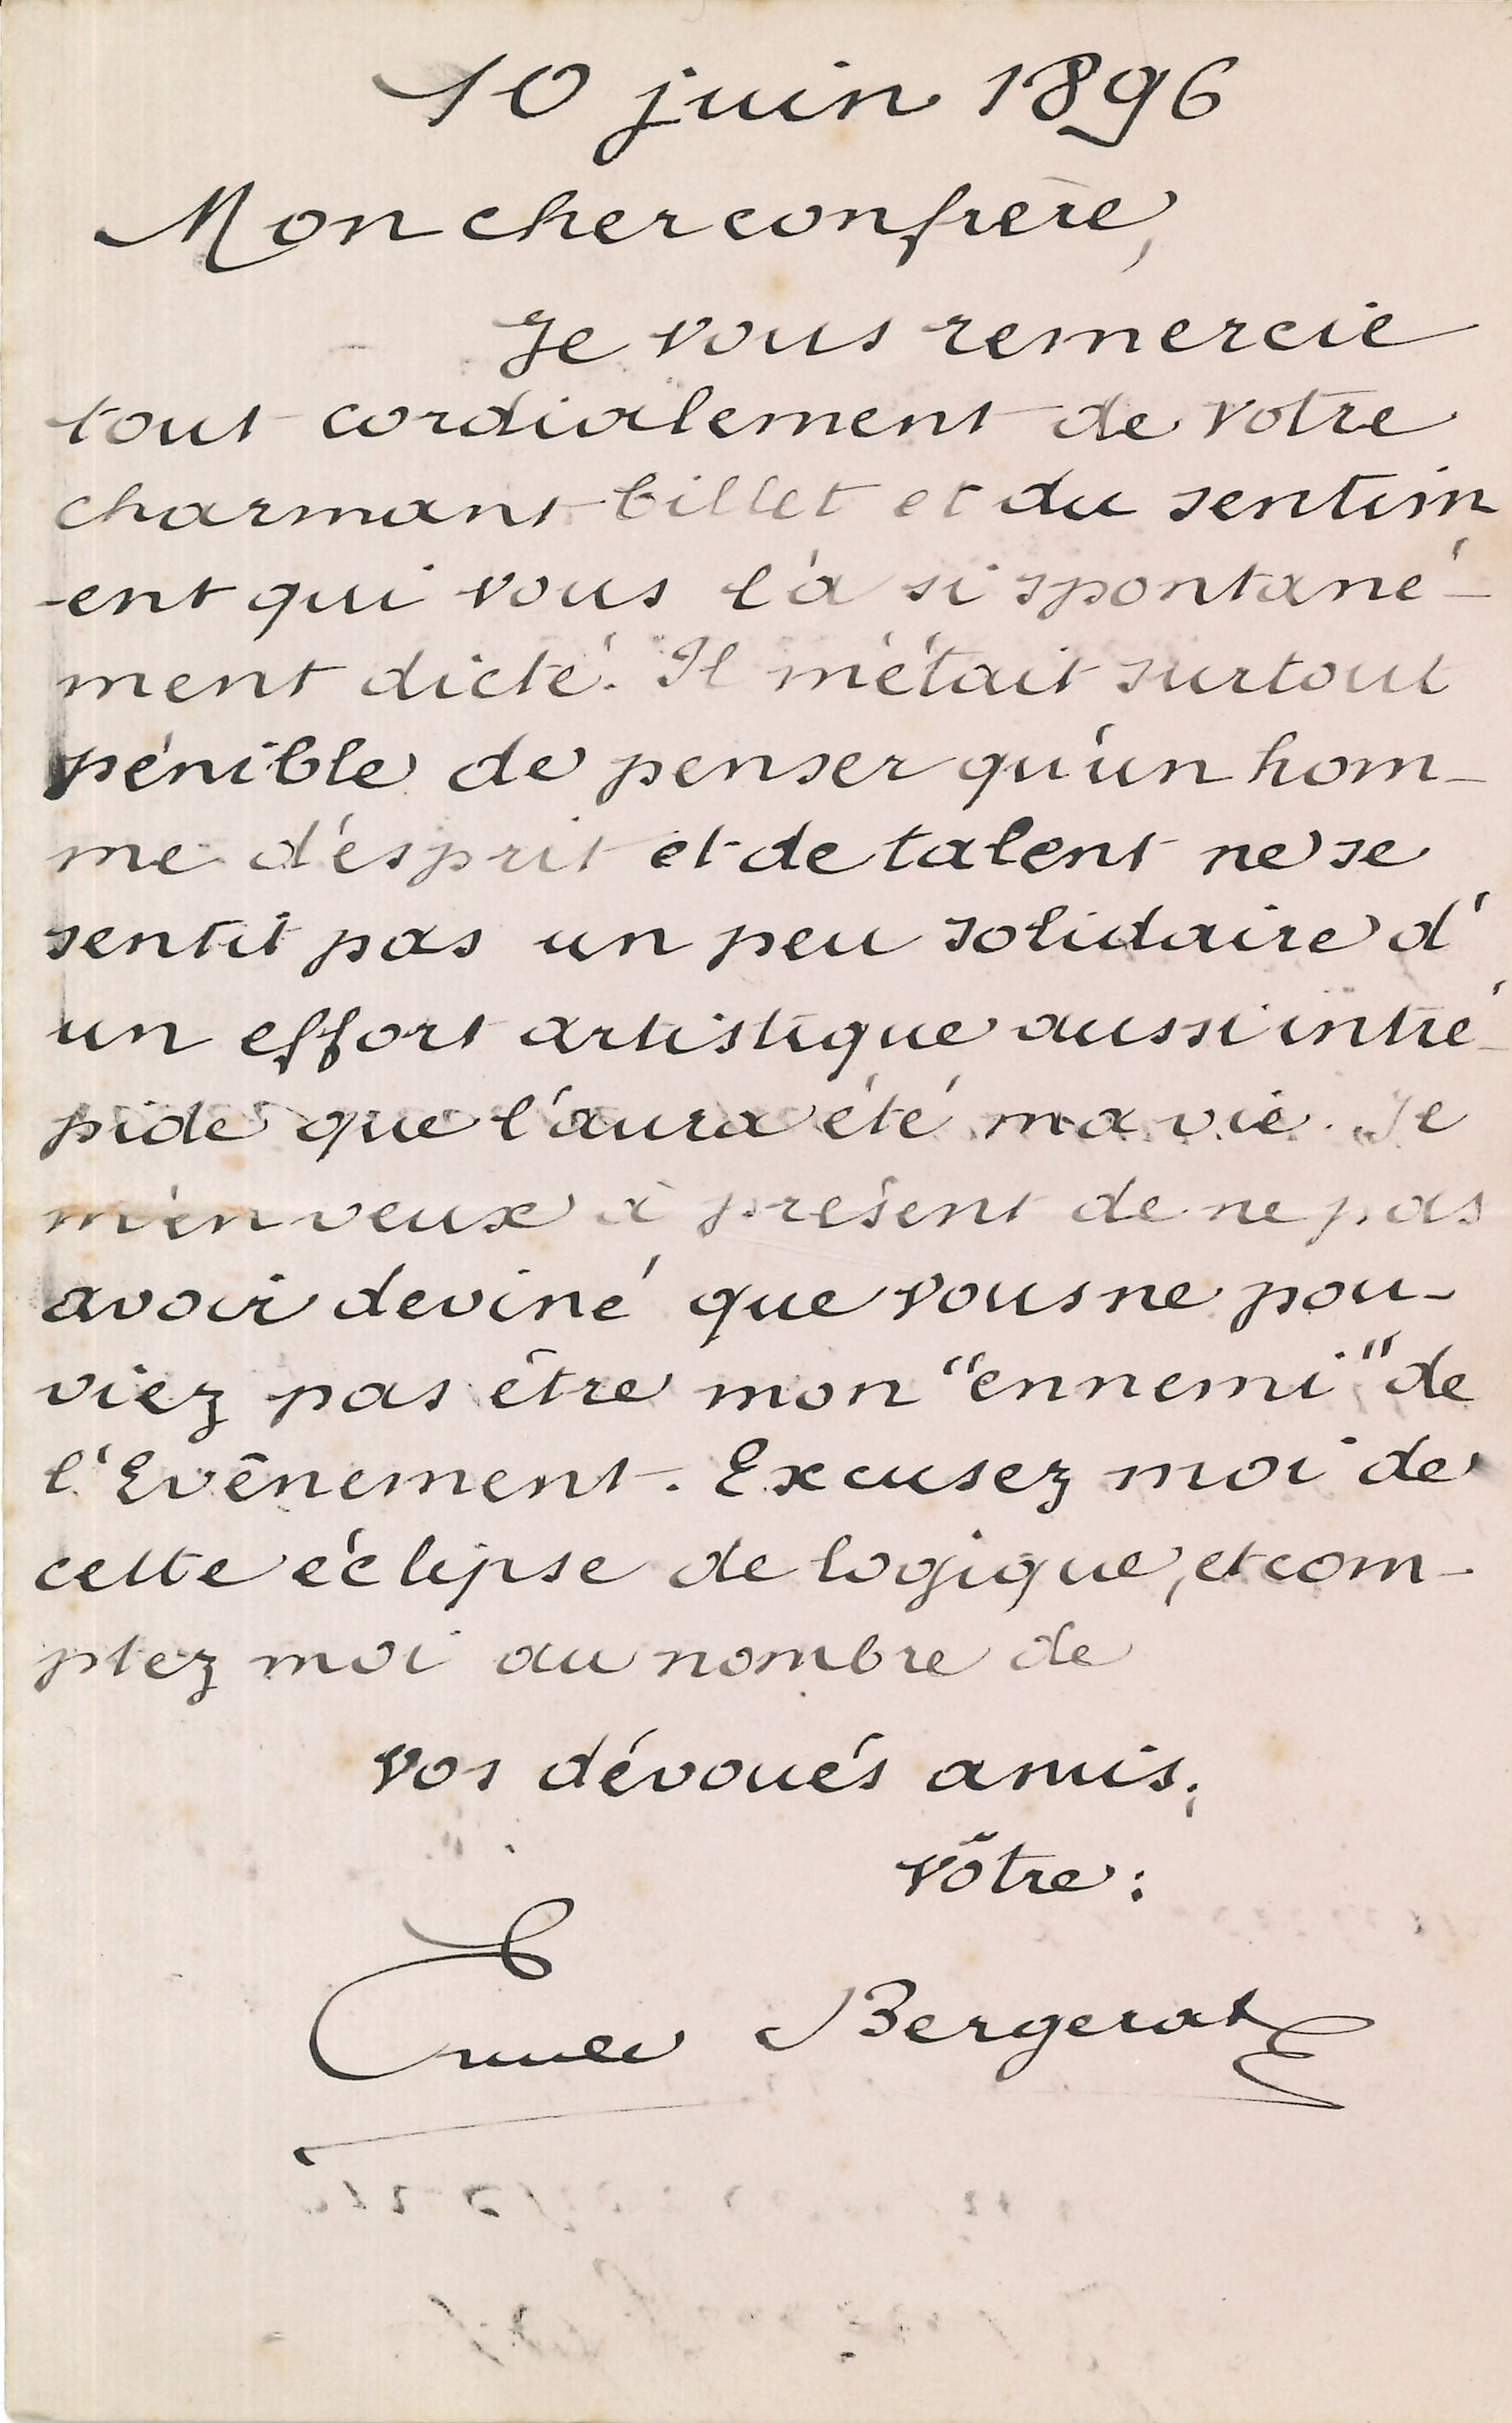 10 juin 1896
Mon cher confrère,
Je vous remercie
tout cordialement de votre
charmant billet et du sentim
-ent qui vous l'a si spontané-
ment dicté. Il m'était surtout
pénible de penser qu'un hom-
me d'esprit et de talent ne se
sentit pas un peu solidaire d'
un effort artistique aussi intré-
pide que l'aura été ma vie. Je
m'en veux à présent de ne pas
avoir deviné que vous ne pou-
viez pas être mon "ennemi" de
l'Evênement. Excusez moi de
cette éclipse de logique, et com-
ptez moi au nombre de
vos dévoués amis,
vôtre:
Emile Bergerat